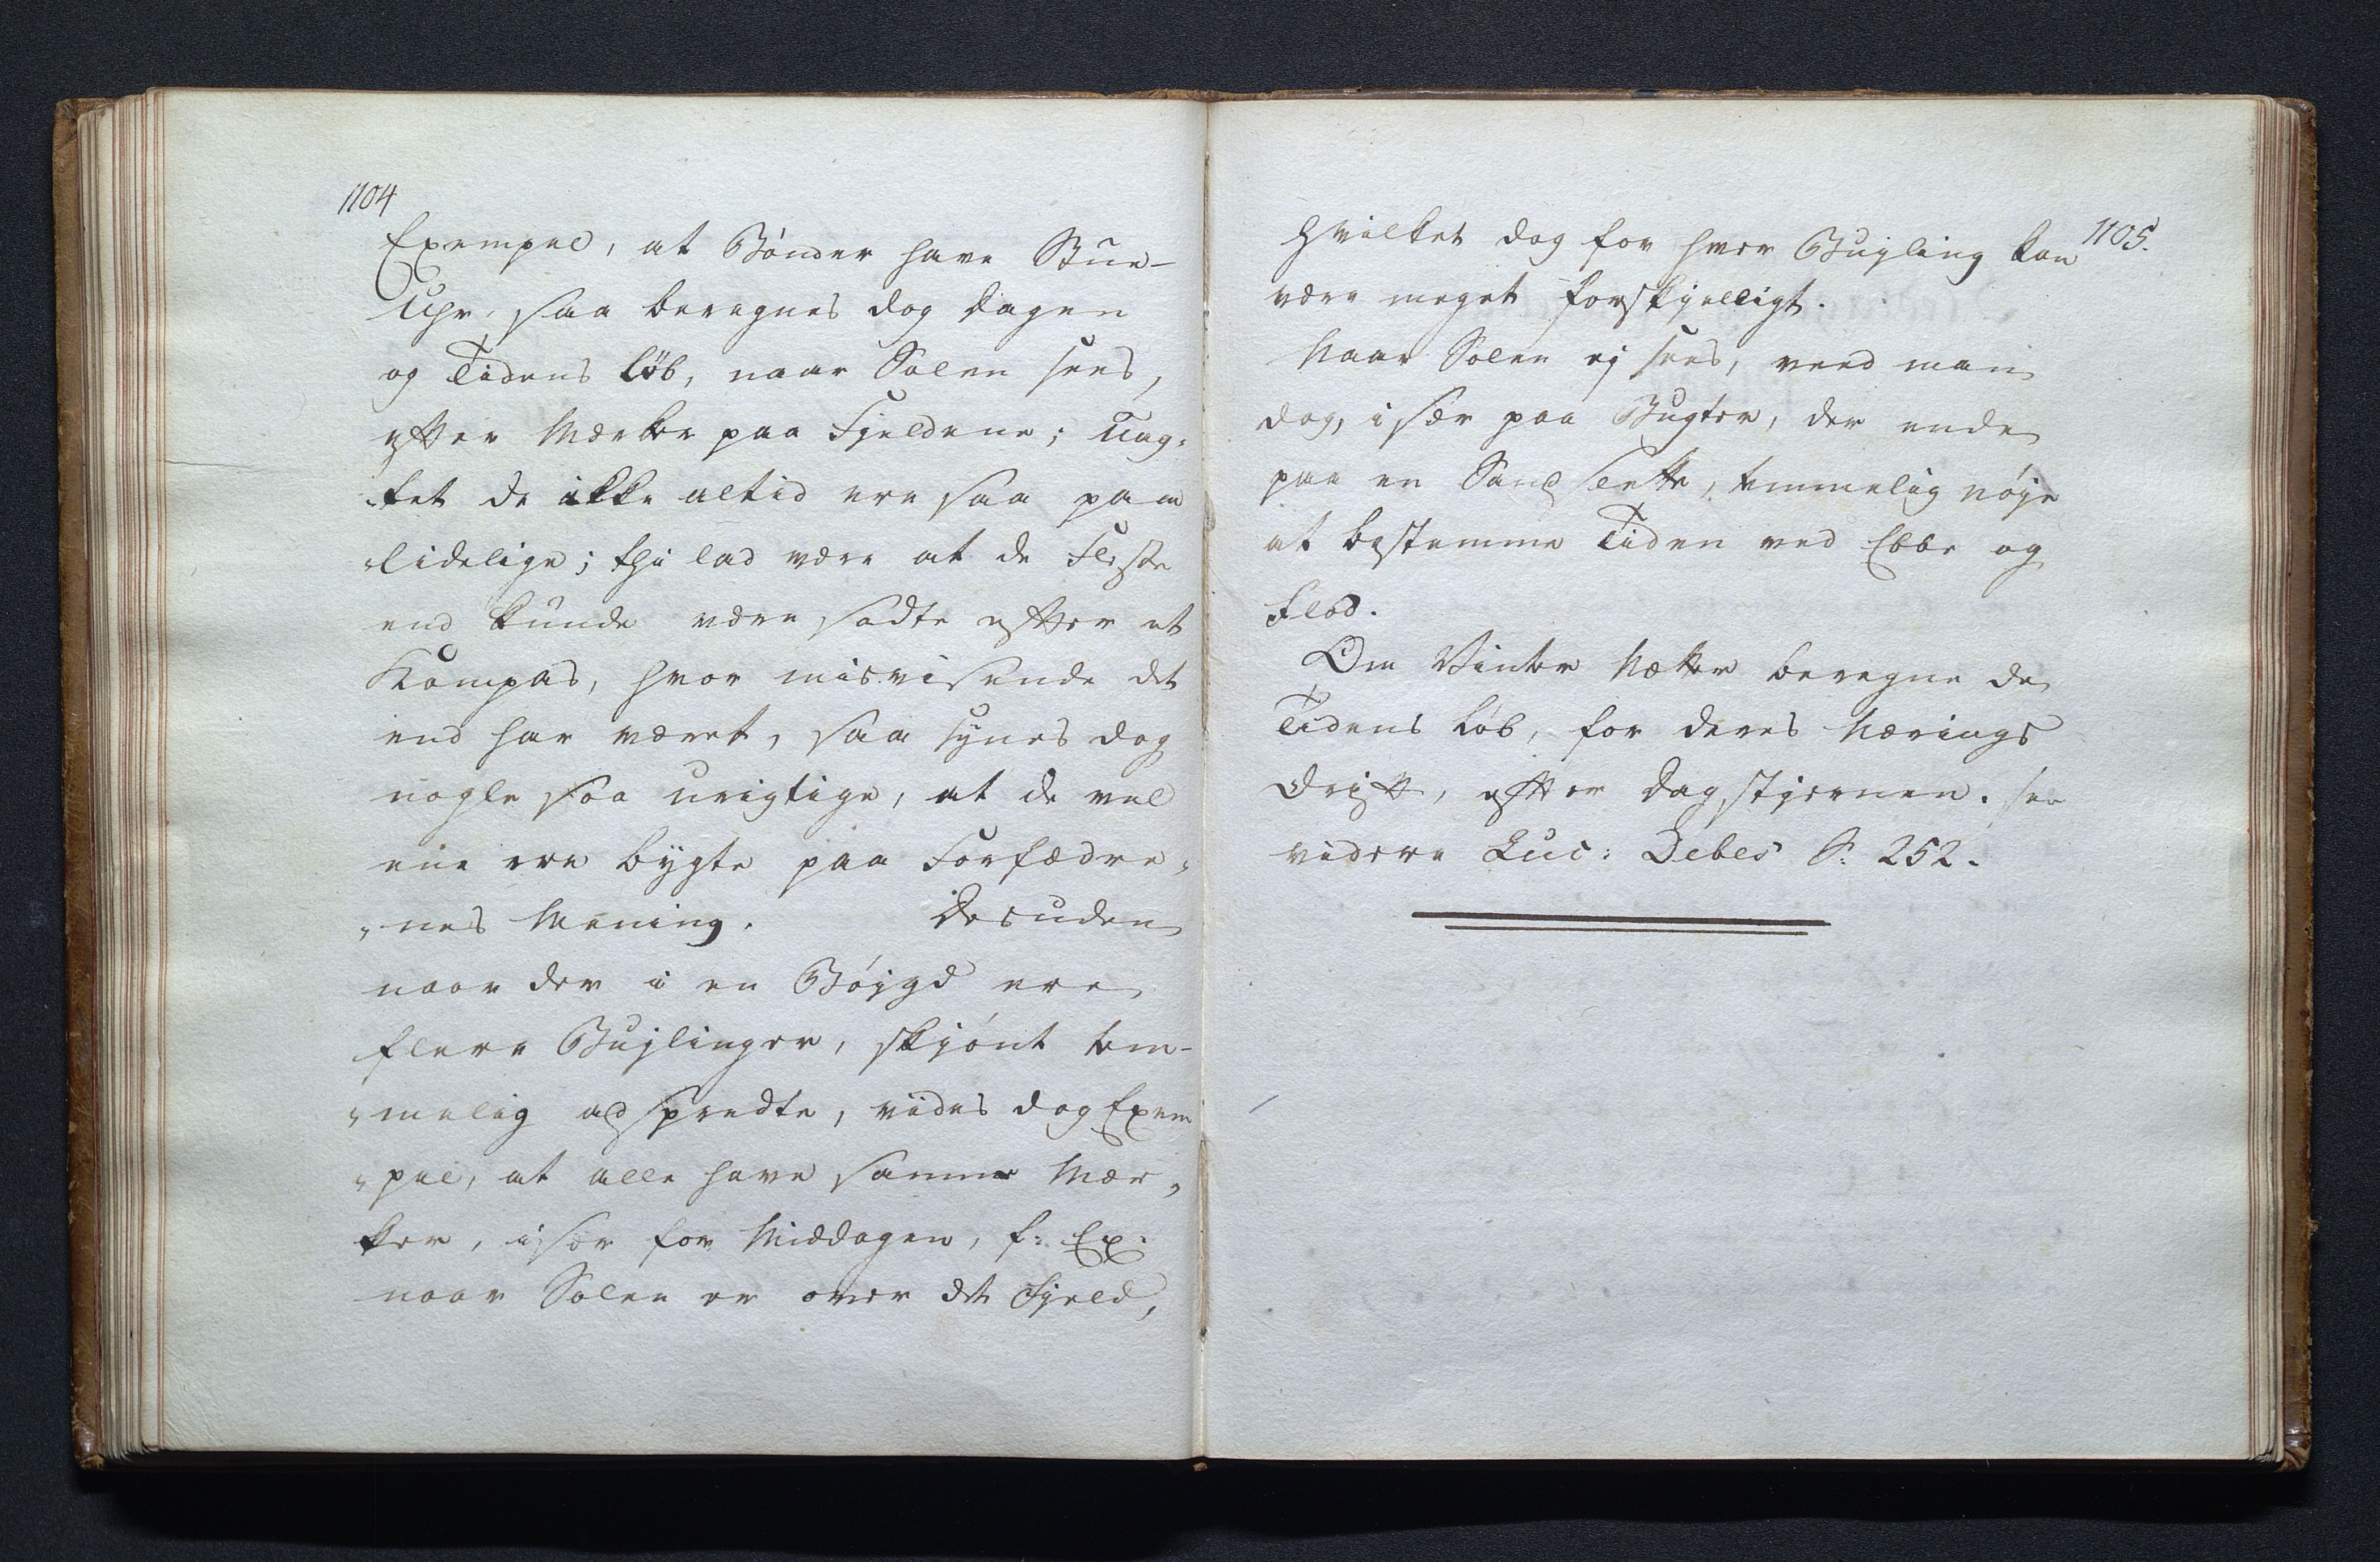 1104
Exempel, at Bønder have Stue-
Uhr, saa beregnes dog Dagen
og Tidens Løb, naar Solen sees,
efter Mærker paa Fjeldene; uag„
tet de ikke altid ere saa paa
„lidelige; thi lad være at de Fleste
end kunde være sadte efter et
Kompas, hvor misvisende det
end har været, saa synes dog
nogle saa urigtige, at de vel
ene ere bygte paa Forfædre„
„nes Mening. Desuden
naar der i en Bøjgd ere
flere Bujlinger, skjønt tem-
„melig adspredte, vides dog Exem
„pel, at alle have samme Mær„
ker, især for Middagen, f: Ex:
naar Solen er over det Fjeld,
1105.
hvilket dog for hver Bujling kan
være meget forskjelligt.
Naar Solen ej sees, veed man
dog, især paa Bugter, der ende
paa en Sand Slette, temmelig nøje
at bestemme Tiden ved Ebbe og
Flod.
Om Vinter Nætter beregne de
Tidens Løb, for deres Nærings
Drift, efter Dagstjernen. see
videre Luc: Debes S: 252.